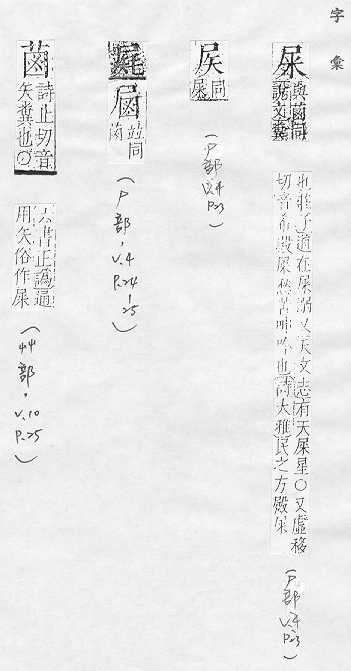 字彙
屎
與 同
說文糞
也莊子道在屎溺又天文志有天屎星○又虛移
切音希殿屎愁苦呻吟也詩大雅民之方殿屎
(尸部 V.4 P.23)
同
屎
(尸部 V.4 P.23)
並同
(尸部, V.4 P.24-25)
詩止切音
矢糞也○
六書正譌通
用矢俗作屎
(艸部, V.10 P.25)